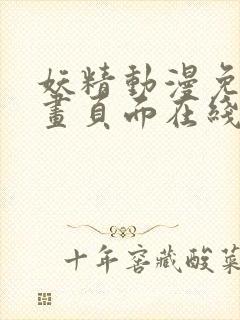 妖精動漫免
畫頁而在綫
十年窖藏酸菜